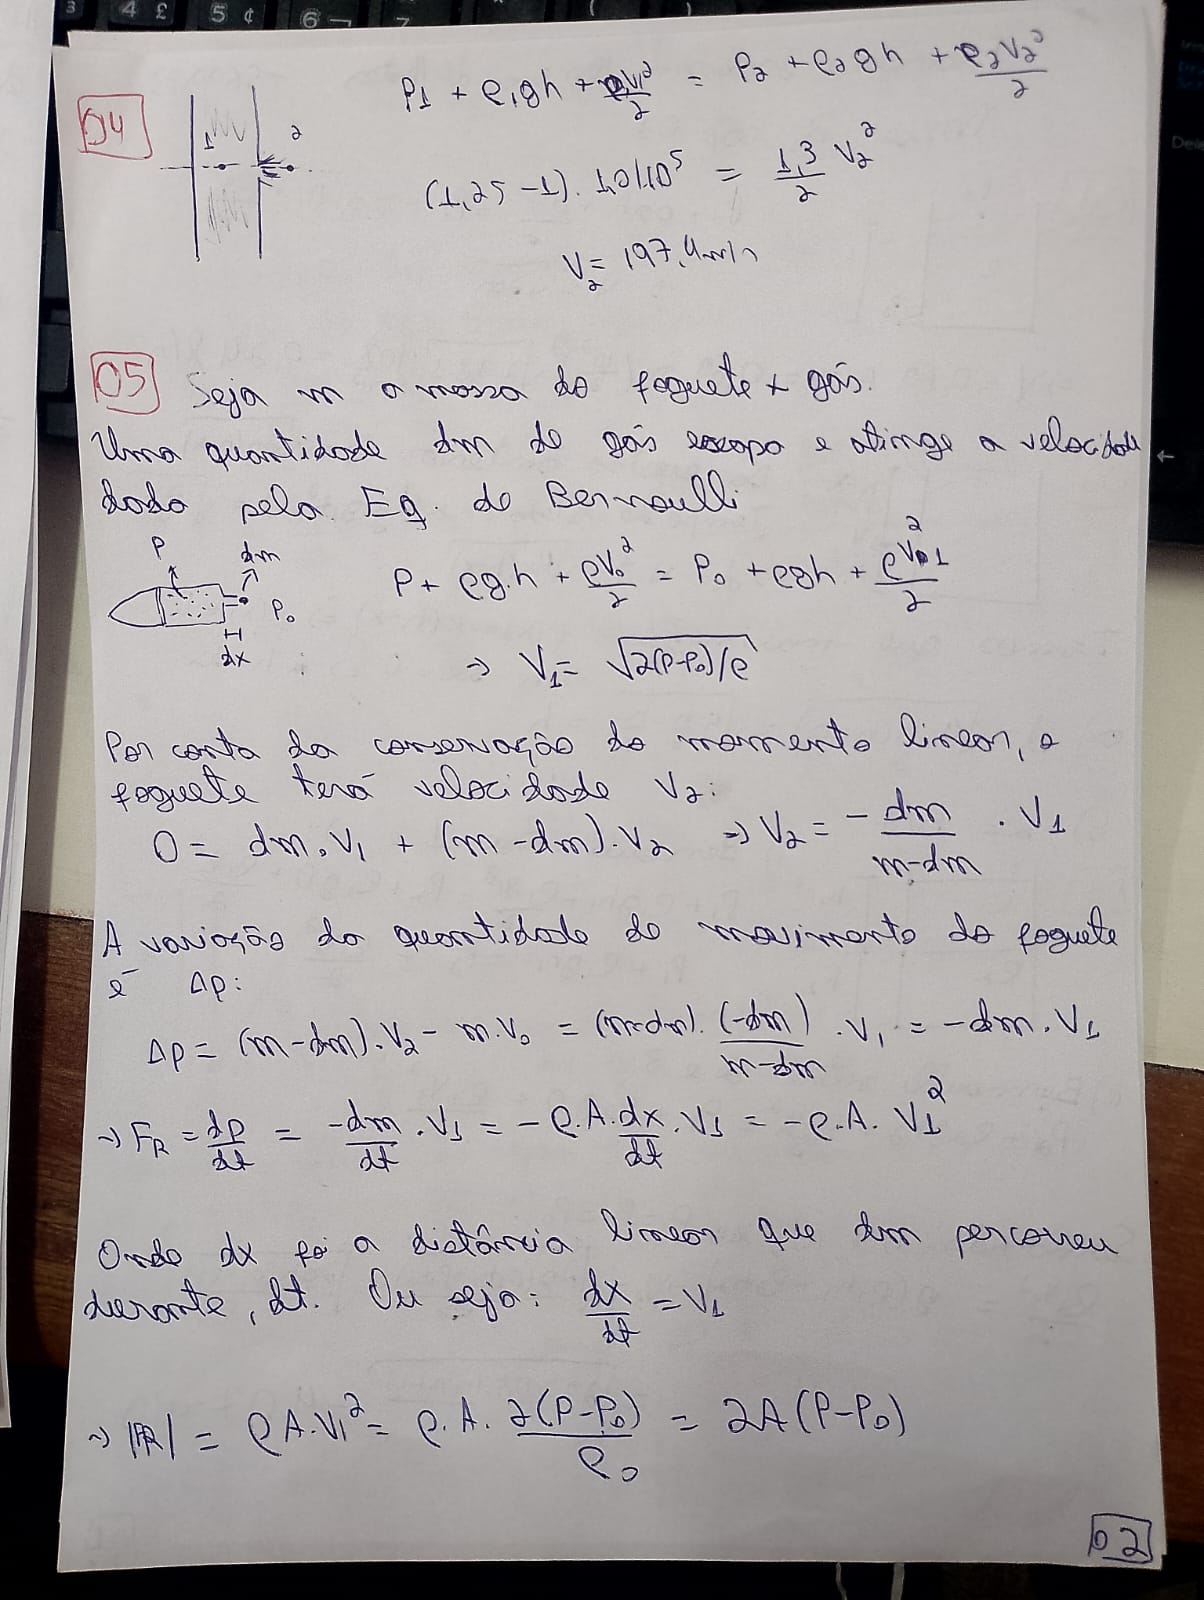 3 4 £ 5 ¢ 6 ¬ 7
P1 + ρ1gh + ρ1V1²/2 = P2 + ρ2gh + ρ2V2²/2
04
1 2
(1,25 - 1). 1,01.10⁵ = 1,3/2 V2²
V2 = 197,4m/s
05 Seja m a massa do foguete + gás.
Uma quantidade dm de gás escapa e atinge a velocidade
dada pela Eq. de Bernoulli
P dm P0 dx
P + ρg.h + ρV0²/2 = P0 + ρgh + ρV1²/2
→ V1 = √2(P-P0)/ρ
Por conta da conservação do momento linear, o
foguete terá velocidade V2:
0 = dm.V1 + (m-dm).V2 ⇒ V2 = - dm/m-dm . V1
A variação da quantidade de movimento do foguete
é Δp:
Δp = (m-dm).V2 - m.V0 = (m-dm). (-dm)/m-dm . V1 = -dm.V1
⇒ FR = dp/dt = -dm/dt . V1 = -ρ.A.dx/dt . V1 = -ρ.A. V1²
Onde dx foi a distância linear que dm percorreu
durante, dt. Ou seja: dx/dt = V1
⇒ |FR| = ρA.V1² = ρ.A. 2(P-P0)/ρ0 = 2A(P-P0)
02